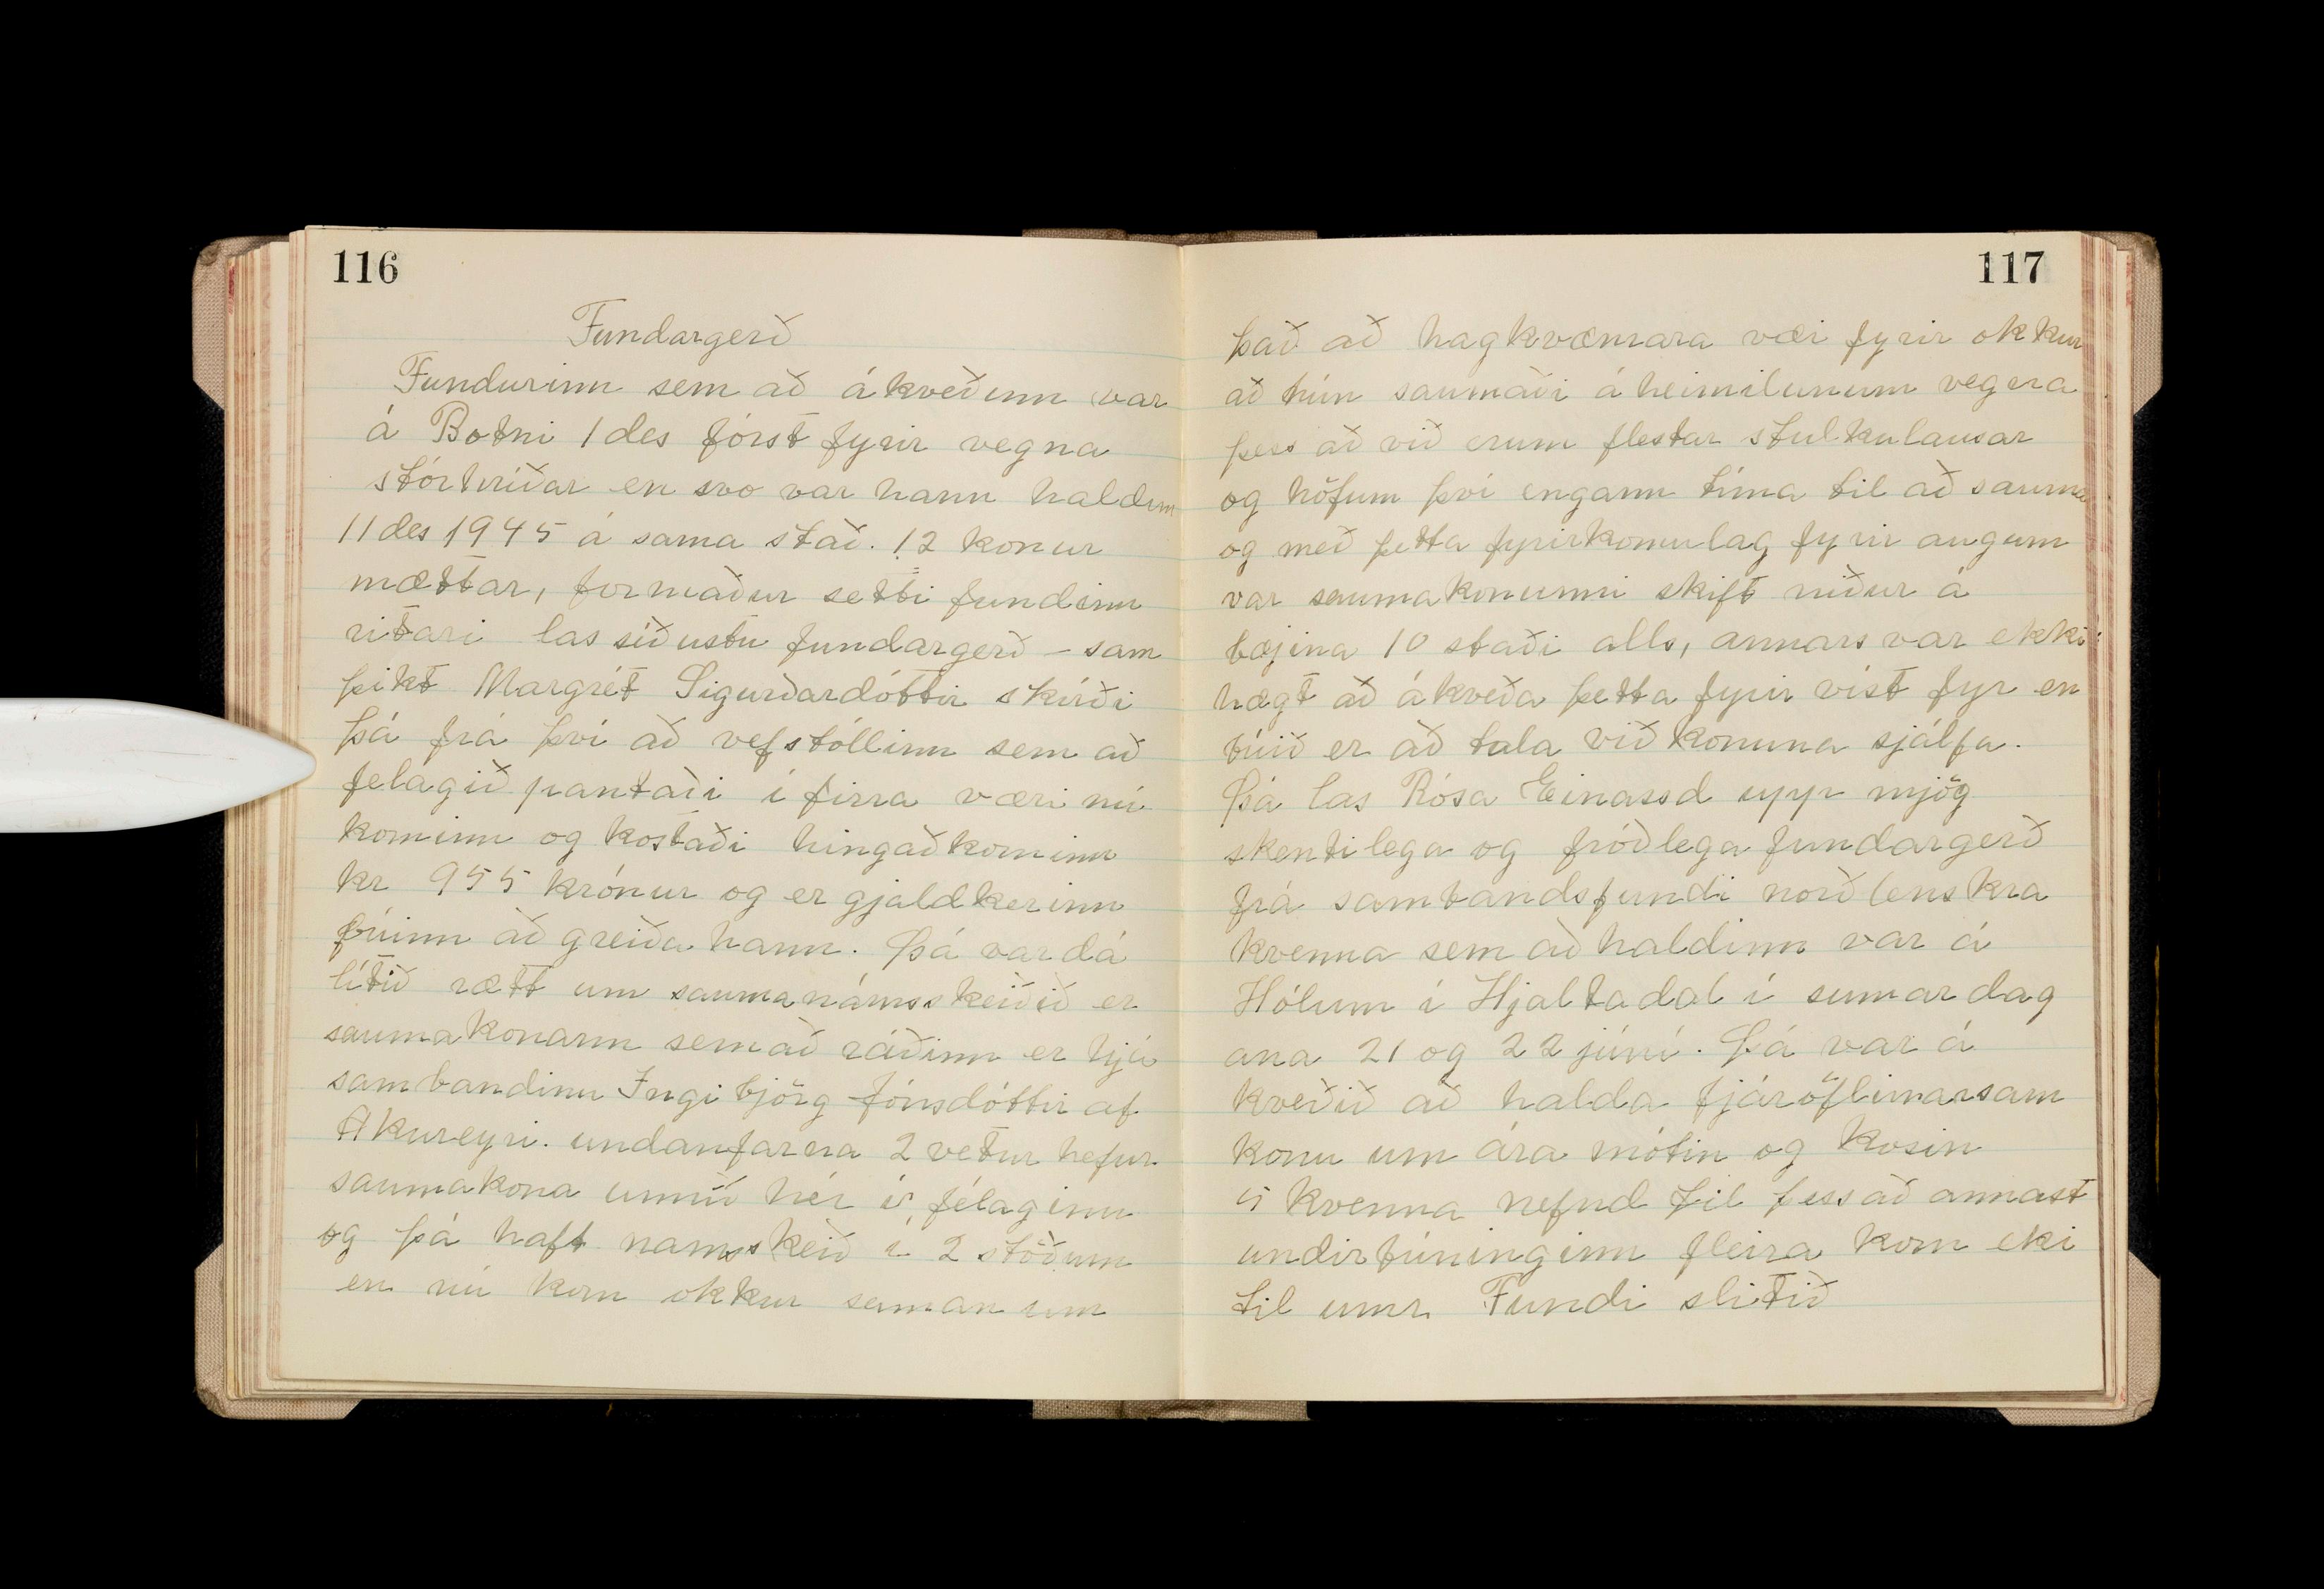 116
Fundargerð
Fundurinn sem að ákveðinn var
á Botni 1 des fórst fyrir vegna
stórhríðar en svo var hann haldinn
11 des 1945 á sama stað. 12 konur
mættar, formaður setti fundinn
ritari las síðustu fundargerð – sam
þikt Margrét Sigurðardóttir skírði
þá frá því að vefstóllinn sem að
felagið pantaði í firra væri nú
kominn og kostaði hingað kominn
kr 955 krónur og er gjaldkerinn
búinn að greiða hann. Þá var dá
lítið rætt um saumanámsskeiðið er
saumakonann sem að ráðinn er hjá
sambandinu Ingibjörg Jónsdóttir af
Akureyri. undanfarna 2 vetur hefur
saumakona unnið hér í félaginu
og þá haft namsskeið í 2 stöðum
en nú kom okkur saman um
117
það að hagkvæmara væi fyrir okkur
að hún saumaði á heimilunum vegna
þess að við erum flestar stulkulausar
og höfum því engann tíma til að sauma
og með þetta fyrirkomulag fyrir augum
var saumakonunni skift niður á
bæjina 10 staði alls, annars var ekki
hægt að ákveða þetta fyrir víst fyr en
búið er að tala við konuna sjálfa.
Þá las Rósa Einarsd upp mjög
skentilega og fróðlega fundargerð
frá sambandsfundi norðlenskra
kvenna sem að haldinn var á
Hólum í Hjaltadal í sumar dag
ana 21 og 22 júní. Þá var á
kveðið að halda fjáröflunarsam
konu um ára mótin og kosin
5 kvenna nefnd til þess að annast
undirbúninginn fleira kom eki
til umr. Fundi slitið